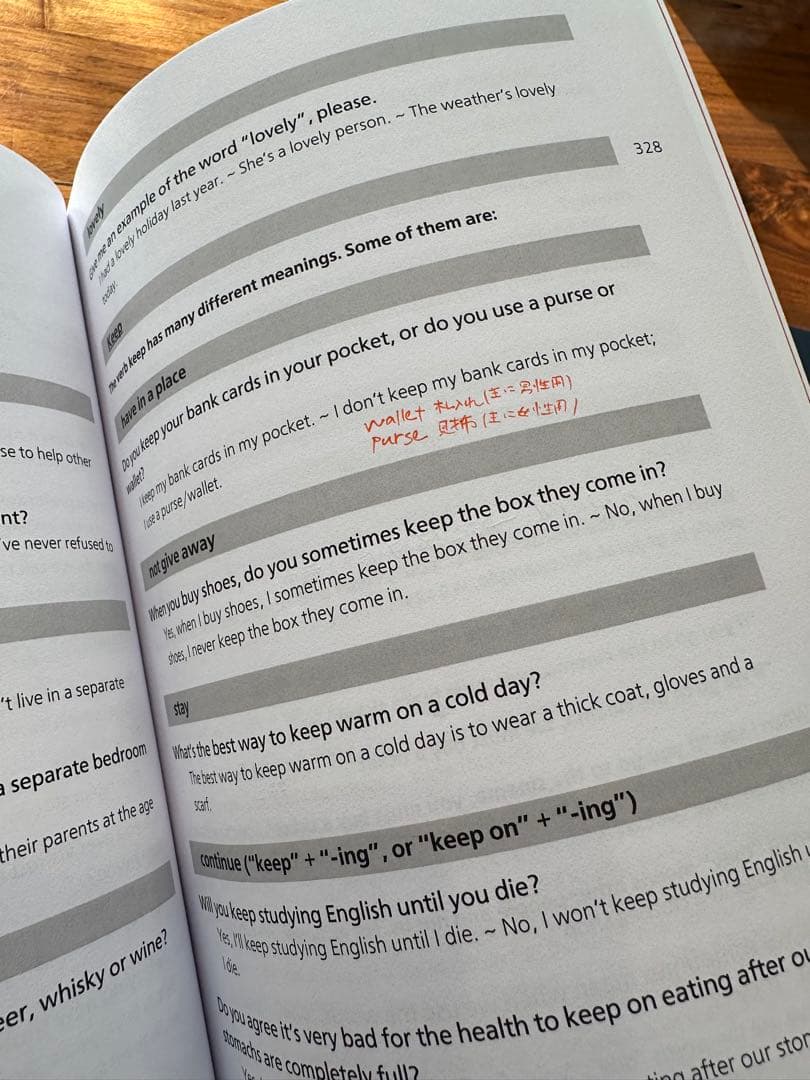 se to help other
nt?
've never refused to
't live in a separate
a separate bedroom
their parents at the age
eer, whisky or wine?
lovely
Give me an example of the word "lovely", please.
I had a lovely holiday last year. ~ She's a lovely person. ~ The weather's lovely
today.
328
Keep
The verb keep has many different meanings. Some of them are:
have in a place
Do you keep your bank cards in your pocket, or do you use a purse or
wallet?
I keep my bank cards in my pocket. ~ I don't keep my bank cards in my pocket;
I use a purse/wallet.
wallet 札入れ(主に男性用)
purse 財布(主に女性用)
not give away
When you buy shoes, do you sometimes keep the box they come in?
Yes, when I buy shoes, I sometimes keep the box they come in. ~ No, when I buy
shoes, I never keep the box they come in.
stay
What's the best way to keep warm on a cold day?
The best way to keep warm on a cold day is to wear a thick coat, gloves and a
scarf.
continue ("keep" + "-ing", or "keep on" + "-ing")
Will you keep studying English until you die?
Yes, I'll keep studying English until I die. ~ No, I won't keep studying English
I die.
Do you agree it's very bad for the health to keep on eating after ou
stomachs are completely full?
Yes
ting after our stom